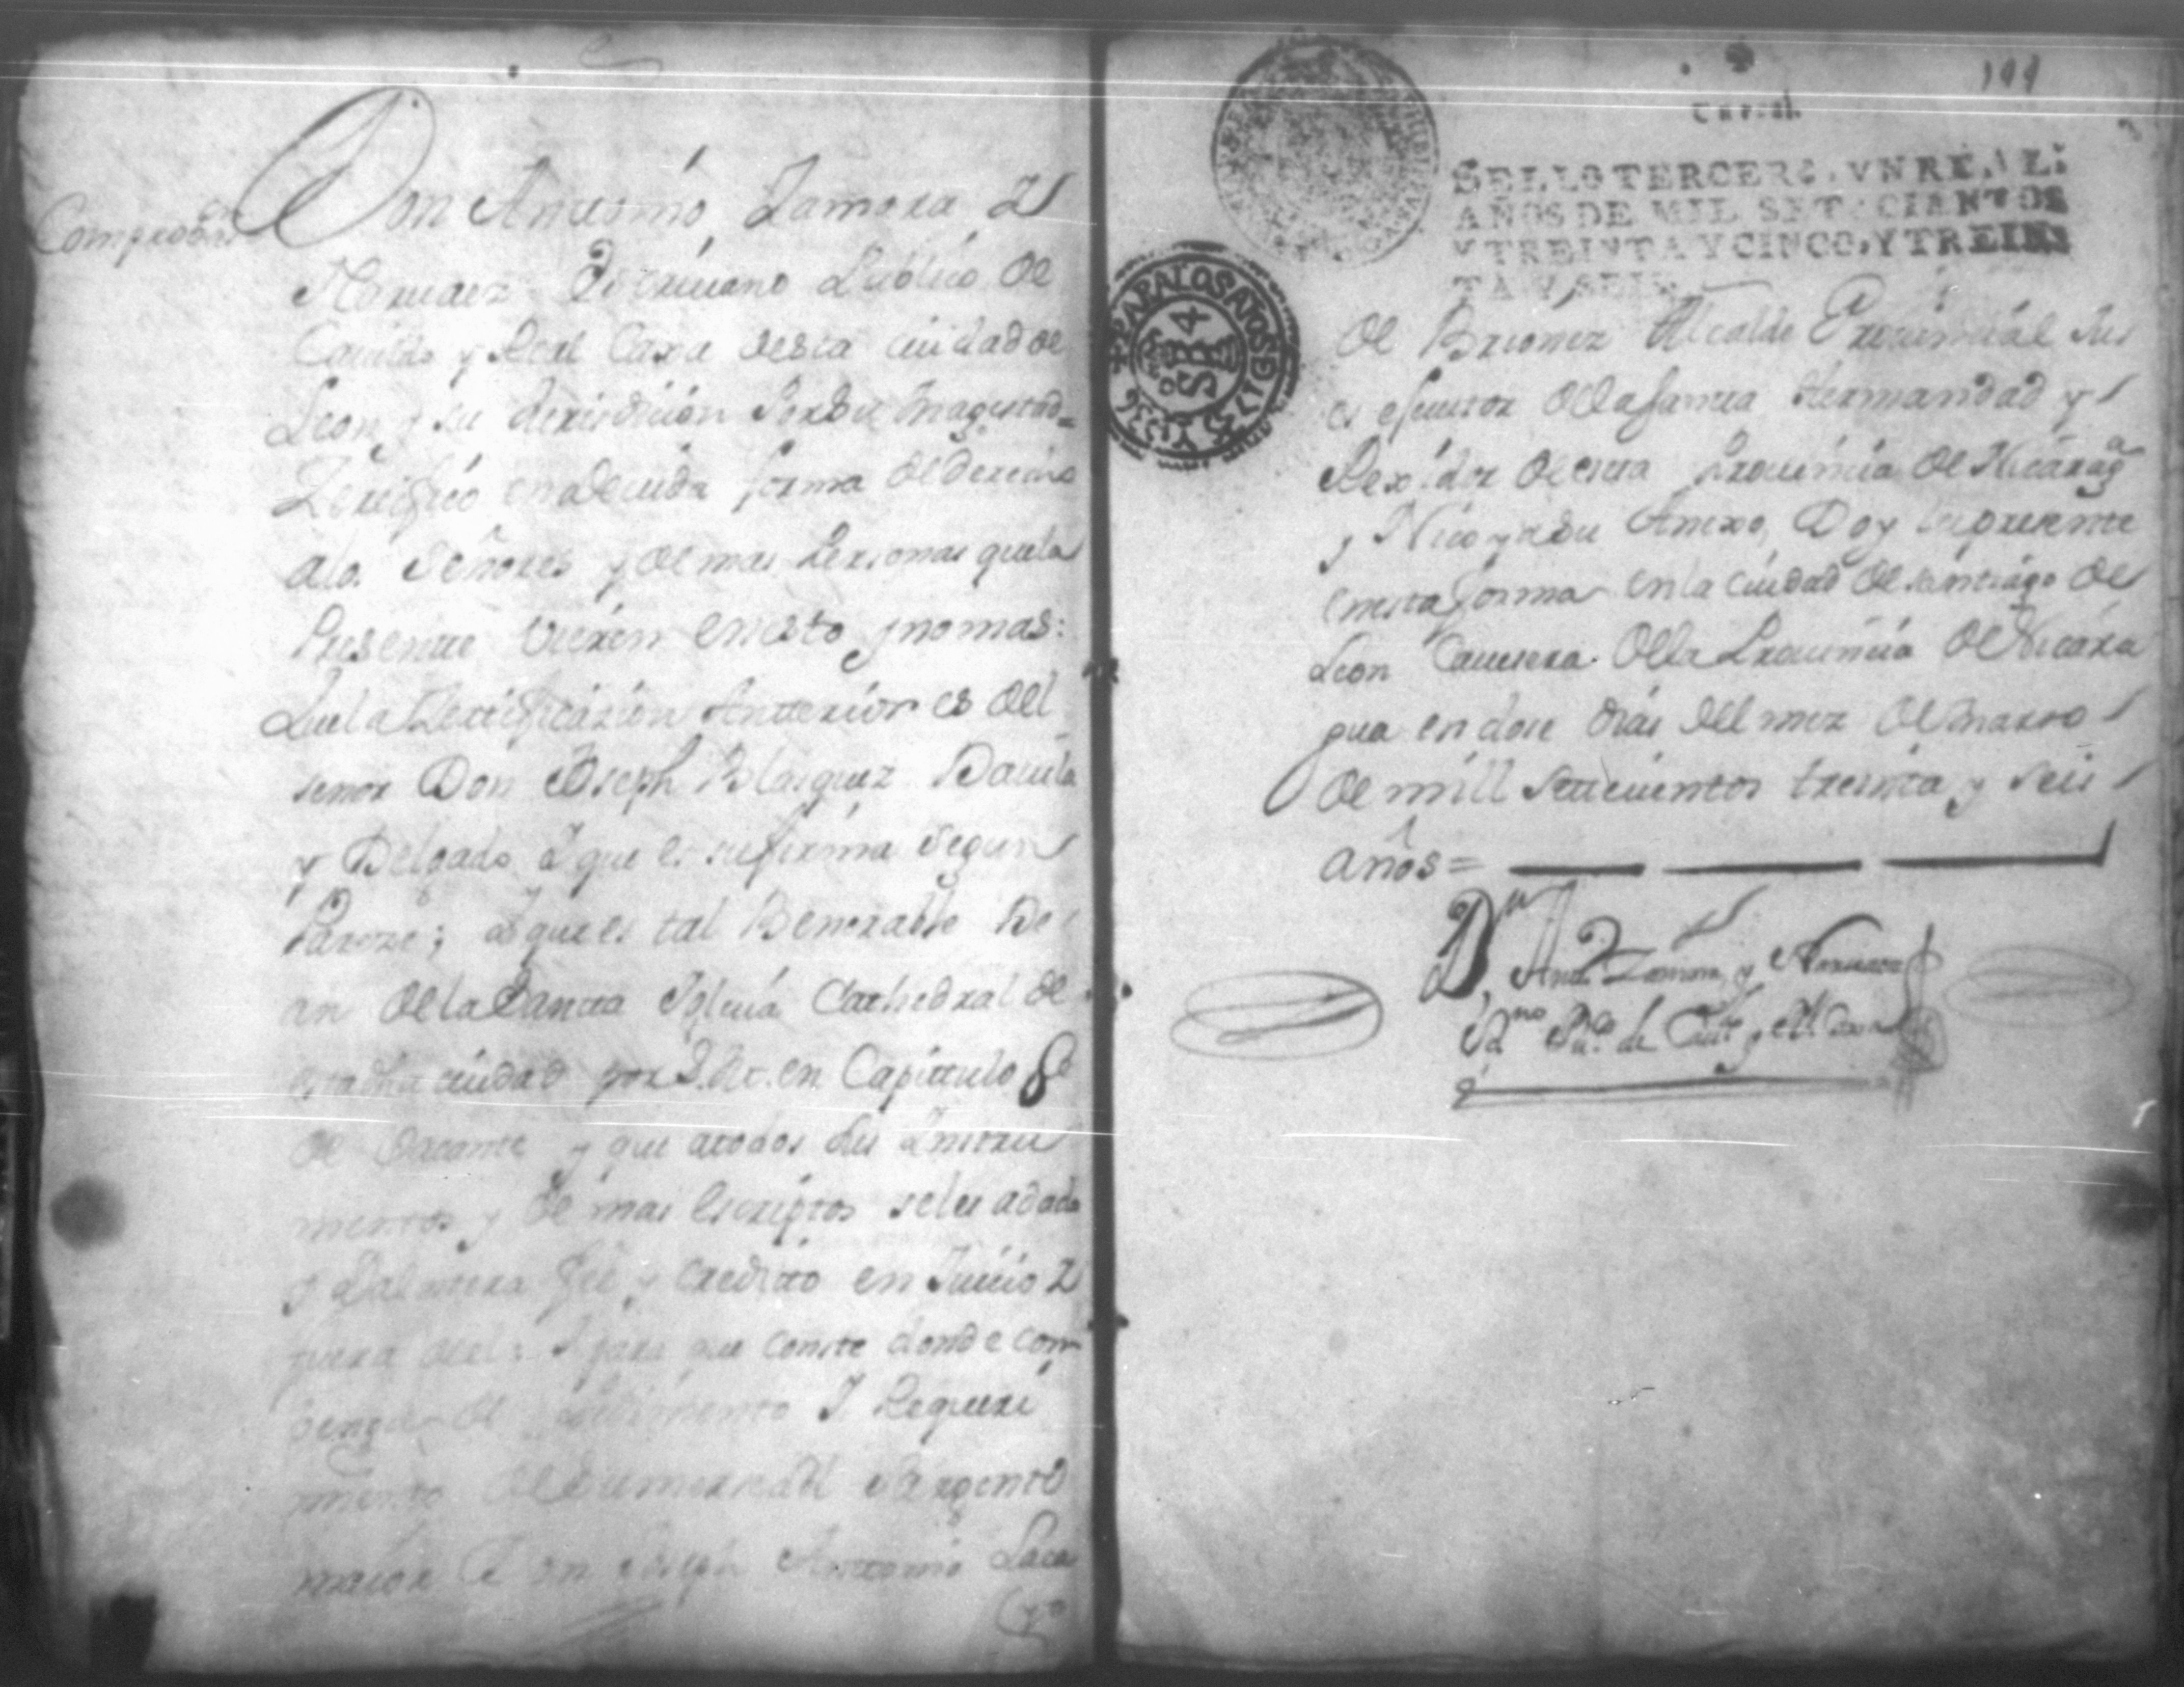 Comprobaon
Don Antonio Zamora Y
Narvaez Escrivano Publico de
Cavildo y Real Caxa desta ciudad de
Leon y su Jurisdición Por Su Magestad=
Zertifico en devida forma de derecho
a los Señores y demas Personas que la
Presente Vieren en esto y no mas:
Que la Zertificazion Anterior es del
señor Don Joseph Blasquez Davila
y Delgado á que es su firma segun
Pareze; a que es tal Benerable De
an de la Santa Iglesia Cathedral de
esta dha ciudad por S. M. en Capitulo
de Vacante y que a todos sus Instru
mentos y de mas escriptos se les a dado
y da entera fee y credito en Juicio Y
fuera del: Y para que conste donde com
benga de Pedimento Y Requeri
miento
maior Don Joseph Antonio Laca
yo
111
SELLO TERCERO, VN REAL:
AÑOS DE MIL SETECIENTOS
Y TREINTA Y CINCO, Y TREIN
TA Y SEIS.
PARA LOS AÑOS D 1735 Y 1736
de Briones Alcalde Provincial Jus
es esecutor de la santa Hermandad y
Rexidor de esta Provincia de Nicaraga
y Nicoya Su Anexo, Doy la presente
en esta forma en la Ciudad de santiago de
Leon Cavesera de la Provincia de Nicara
gua en dose dias del mez de marso
de mill settecientos treinta y seis
años=
Dn Anto Zamora y Narvaez
Esno Puco de Cavdo y Rl Caxa